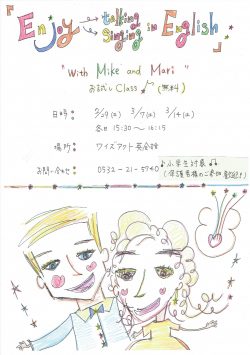 「Enjoy talking singing in English」
"With Mike and Mari"
お試し Class♪(無料)
日時: 2/29(土) 3/7(土) 3/14(土)
各日 15:30 ～ 16:15
場所: ワイズアカデミー英会話
お問い合わせ: 0532-21-5740
♪小学生対象♪
(保護者様のご参加歓迎!!)